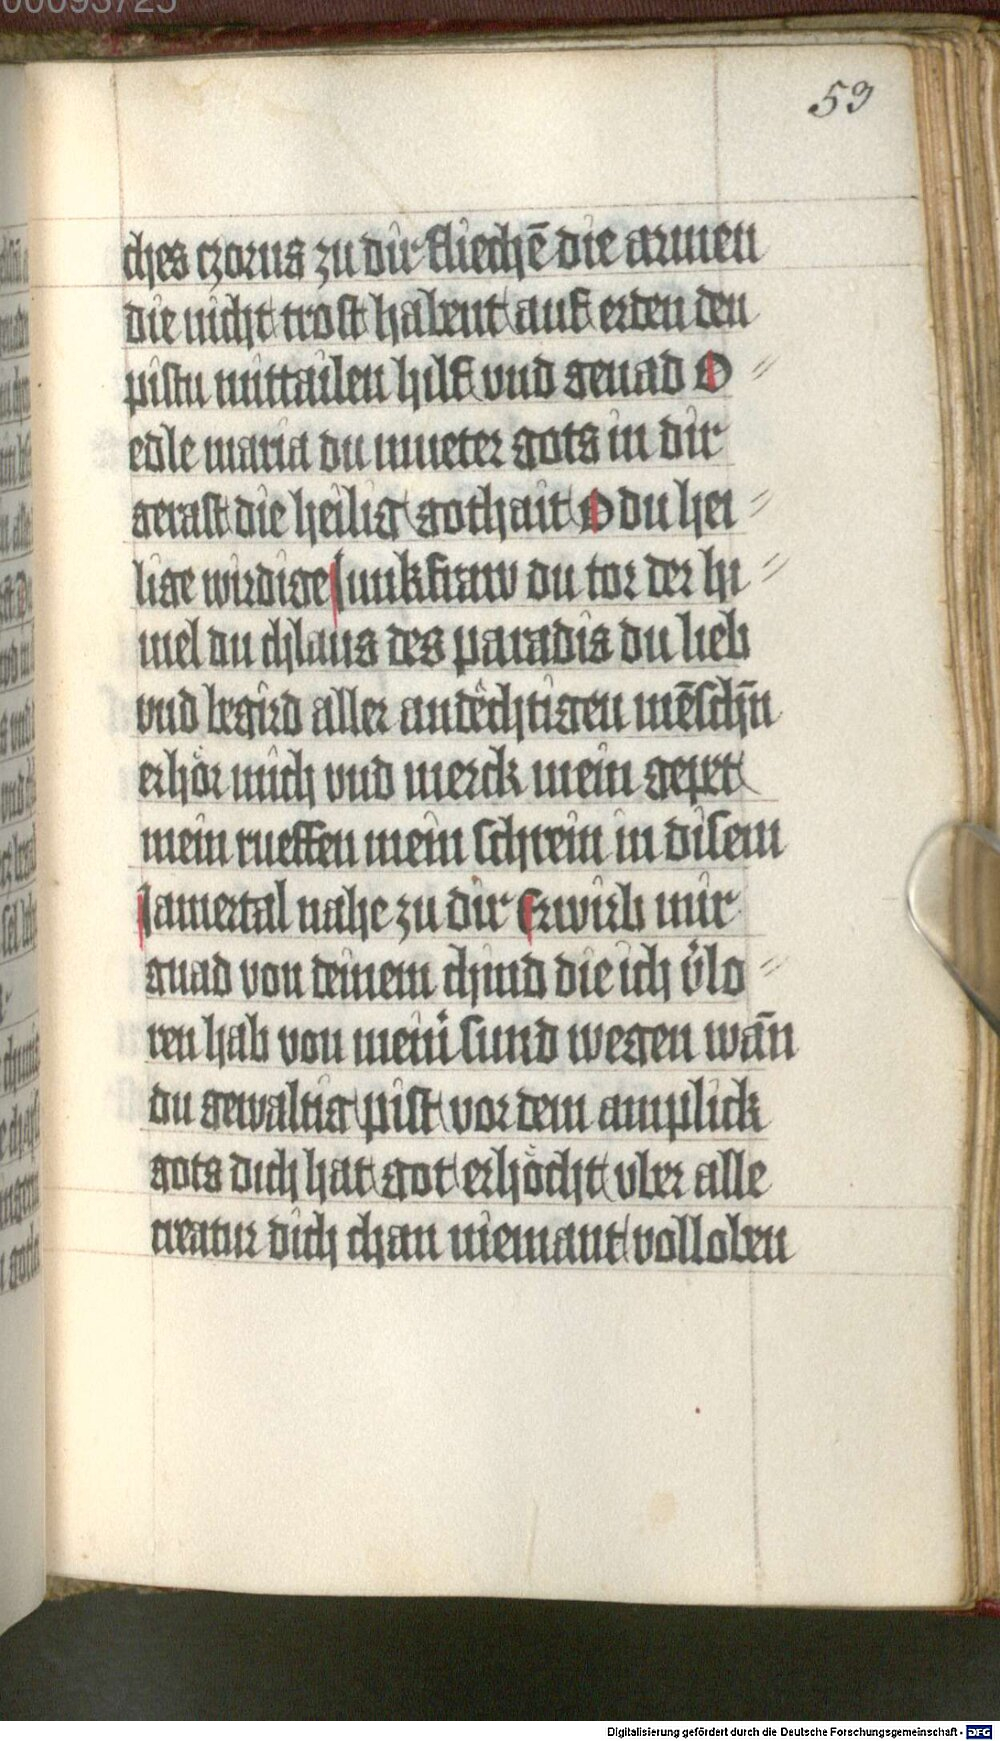 00093725
53
ches czorns zu dir fliechē die armen
die nicht trost habent auf erden den
pistu mittailen hilf vnd genad O
edle maria du mueter gots in dir
gerast die heilig gothait O du hei
lige wirdige Junkfraw du tor der hi
mel du chlaus des paradis du lieb
vnd begird aller andëchtigen mēschn̄
erhör mich vnd merck mein gepet
mein rueffen mein schrein in disem
Jamertal nahe zu dir Erwirb mir
gnad von deinem chind die ich v̈lo
ren hab von mein̈ sund wegen wān
du gewaltig pist vor dem amplick
gots dich hat got erhöcht vber alle
creatur dich chan niemant volloben
Digitalisierung gefördert durch die Deutsche Forschungsgemeinschaft - DFG